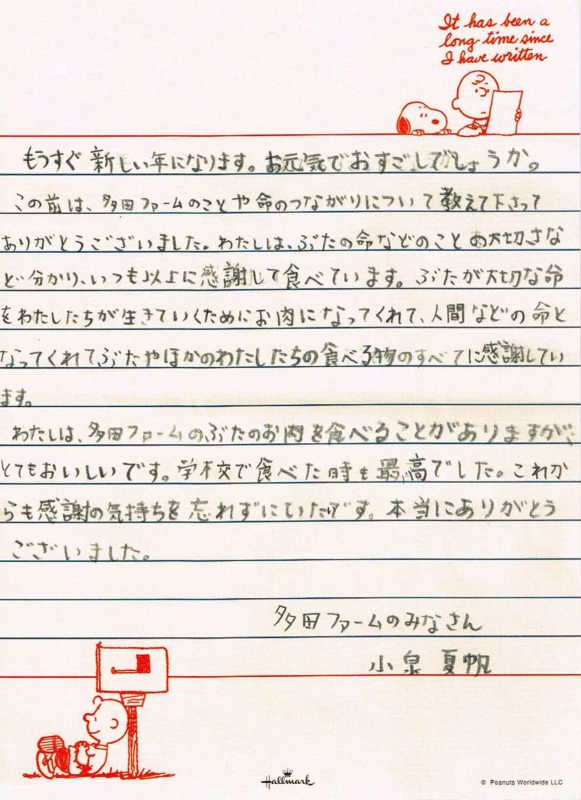 It has been a
long time since
I have written
もうすぐ新しい年になります。お元気でおすごしでしょうか。
この前は、多田ファームのことや命のつながりについて教えて下さって
ありがとうございました。わたしは、ぶたの命などのこと の大切さな
ど分かり、いつも以上に感謝して食べています。ぶたが大切な命
をわたしたちが生きていくためにお肉になってくれて、人間などの命と
なってくれてぶたやほかのわたしたちの食べる物のすべてに感謝してい
ます。
わたしは、多田ファームのぶたのお肉を食べることがありますが、
とてもおいしいです。学校で食べた時も最高でした。これか
らも感謝の気持ちを忘れずにいたいです。本当にありがとう
ございました。
多田ファームのみなさん
小泉夏帆
Hallmark
© Peanuts Worldwide LLC